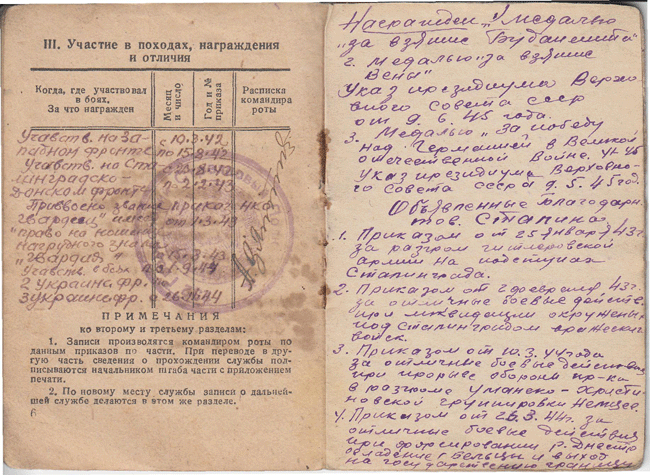 III. Участие в походах, награждения
и отличия
Когда, где участвовал
в боях.
За что награжден
Месяц
и число
Год и №
приказа
Расписка
командира
роты
Учавств. на За-
падном фронте
с 19.3.42
по 15.8.42
Учавств. на Ста-
линградско-
Донском фронте
по 2.2.43
Присвоено звание
приказ НКО
"гвардеец" имеет
от 1.3.43
право на ношение
нагрудного знака
"Гвардия"
Учавств. в боях
2 Украин. фр.
3 Украин. фр.
ПРИМЕЧАНИЯ
ко второму и третьему разделам:
1. Записи произволятся командиром роты по
данным приказов по части. При переводе в дру-
гую часть сведения о прохождении службы под-
писываются начальником штаба части с приложением
печати.
2. По новому месту службы записи о дальней-
шей службе делаются в этом же разделе.
6
Награжден 1 медалью
"за взятие Будапешта"
2. Медалью "за взятие
Вены"
Указ президиума Верхо-
вного Совета ссср
от 9.6.45 года.
3. Медалью "За победу
над Германией в Великой
отечественной Войне.
Указ президиума Верховно-
го Совета ссср 9.5.45 год.
Объявленные благодарн.
тов. Сталина
1. Приказом от 25 января 43г.
за разгром гитлеровской
армии на подступах
Сталинграда.
2. Приказом от 2 февраля 43г.
за отличные боевые действ.
при ликвидации окружен.
под Сталинградом вражеских
войск.
3. Приказом от 10.3.44 года
за отличные боевые действия
при прорыве обороны пр-ка
и разгроме Уманско-Христи-
новской группировки немцев.
4. Приказом от 26.3.44г. за
отличные боевые действия
при форсировании р. Днестр
овладение г. Бельцы и выход
на государственную границу